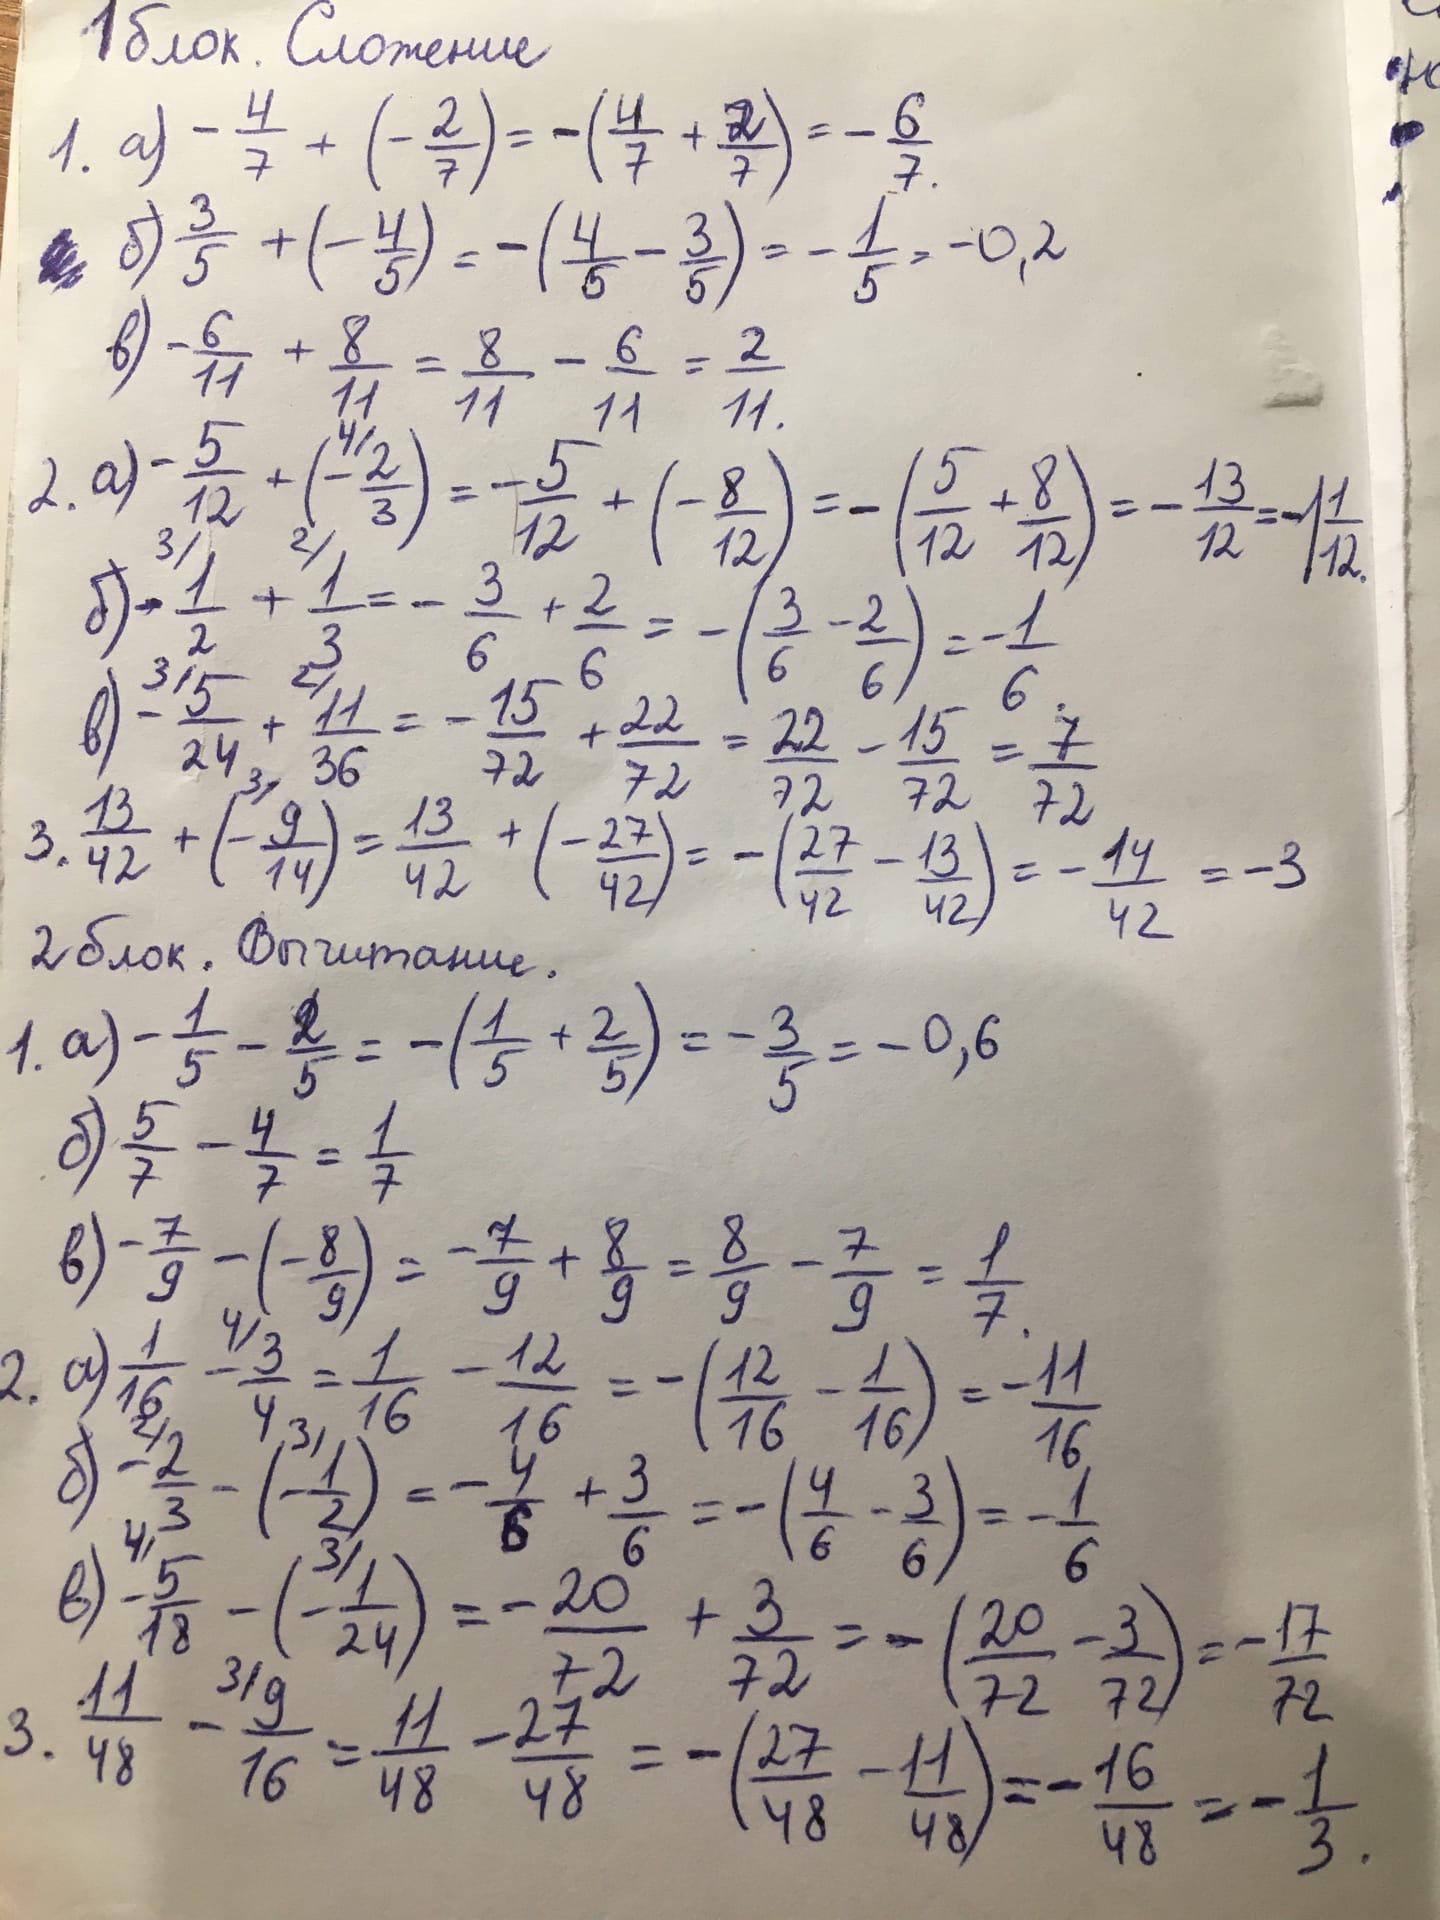 1 блок. Сложение
1. а) -4/7 + (-2/7) = -(4/7 + 2/7) = -6/7.
б) 3/5 + (-4/5) = -(4/5 - 3/5) = -1/5 = -0,2
в) -6/11 + 8/11 = 8/11 - 6/11 = 2/11.
2. а) -5/12 + (-2/3) = -5/12 + (-8/12) = -(5/12 + 8/12) = -13/12 = -1 1/12.
б) -1/2 + 1/3 = -3/6 + 2/6 = -(3/6 - 2/6) = -1/6.
в) -5/24 + 11/36 = -15/72 + 22/72 = 22/72 - 15/72 = 7/72
3. 13/42 + (-9/14) = 13/42 + (-27/42) = -(27/42 - 13/42) = -14/42 = -3
2 блок. Вычитание.
1. а) -1/5 - 2/5 = -(1/5 + 2/5) = -3/5 = -0,6
б) 5/7 - 4/7 = 1/7
в) -7/9 - (-8/9) = -7/9 + 8/9 = 8/9 - 7/9 = 1/7.
2. а) 1/16 - 3/4 = 1/16 - 12/16 = -(12/16 - 1/16) = -11/16
б) -2/3 - (-1/2) = -4/6 + 3/6 = -(4/6 - 3/6) = -1/6
в) -5/18 - (-1/24) = -20/72 + 3/72 = -(20/72 - 3/72) = -17/72
3. 11/48 - 9/16 = 11/48 - 27/48 = -(27/48 - 11/48) = -16/48 = -1/3.